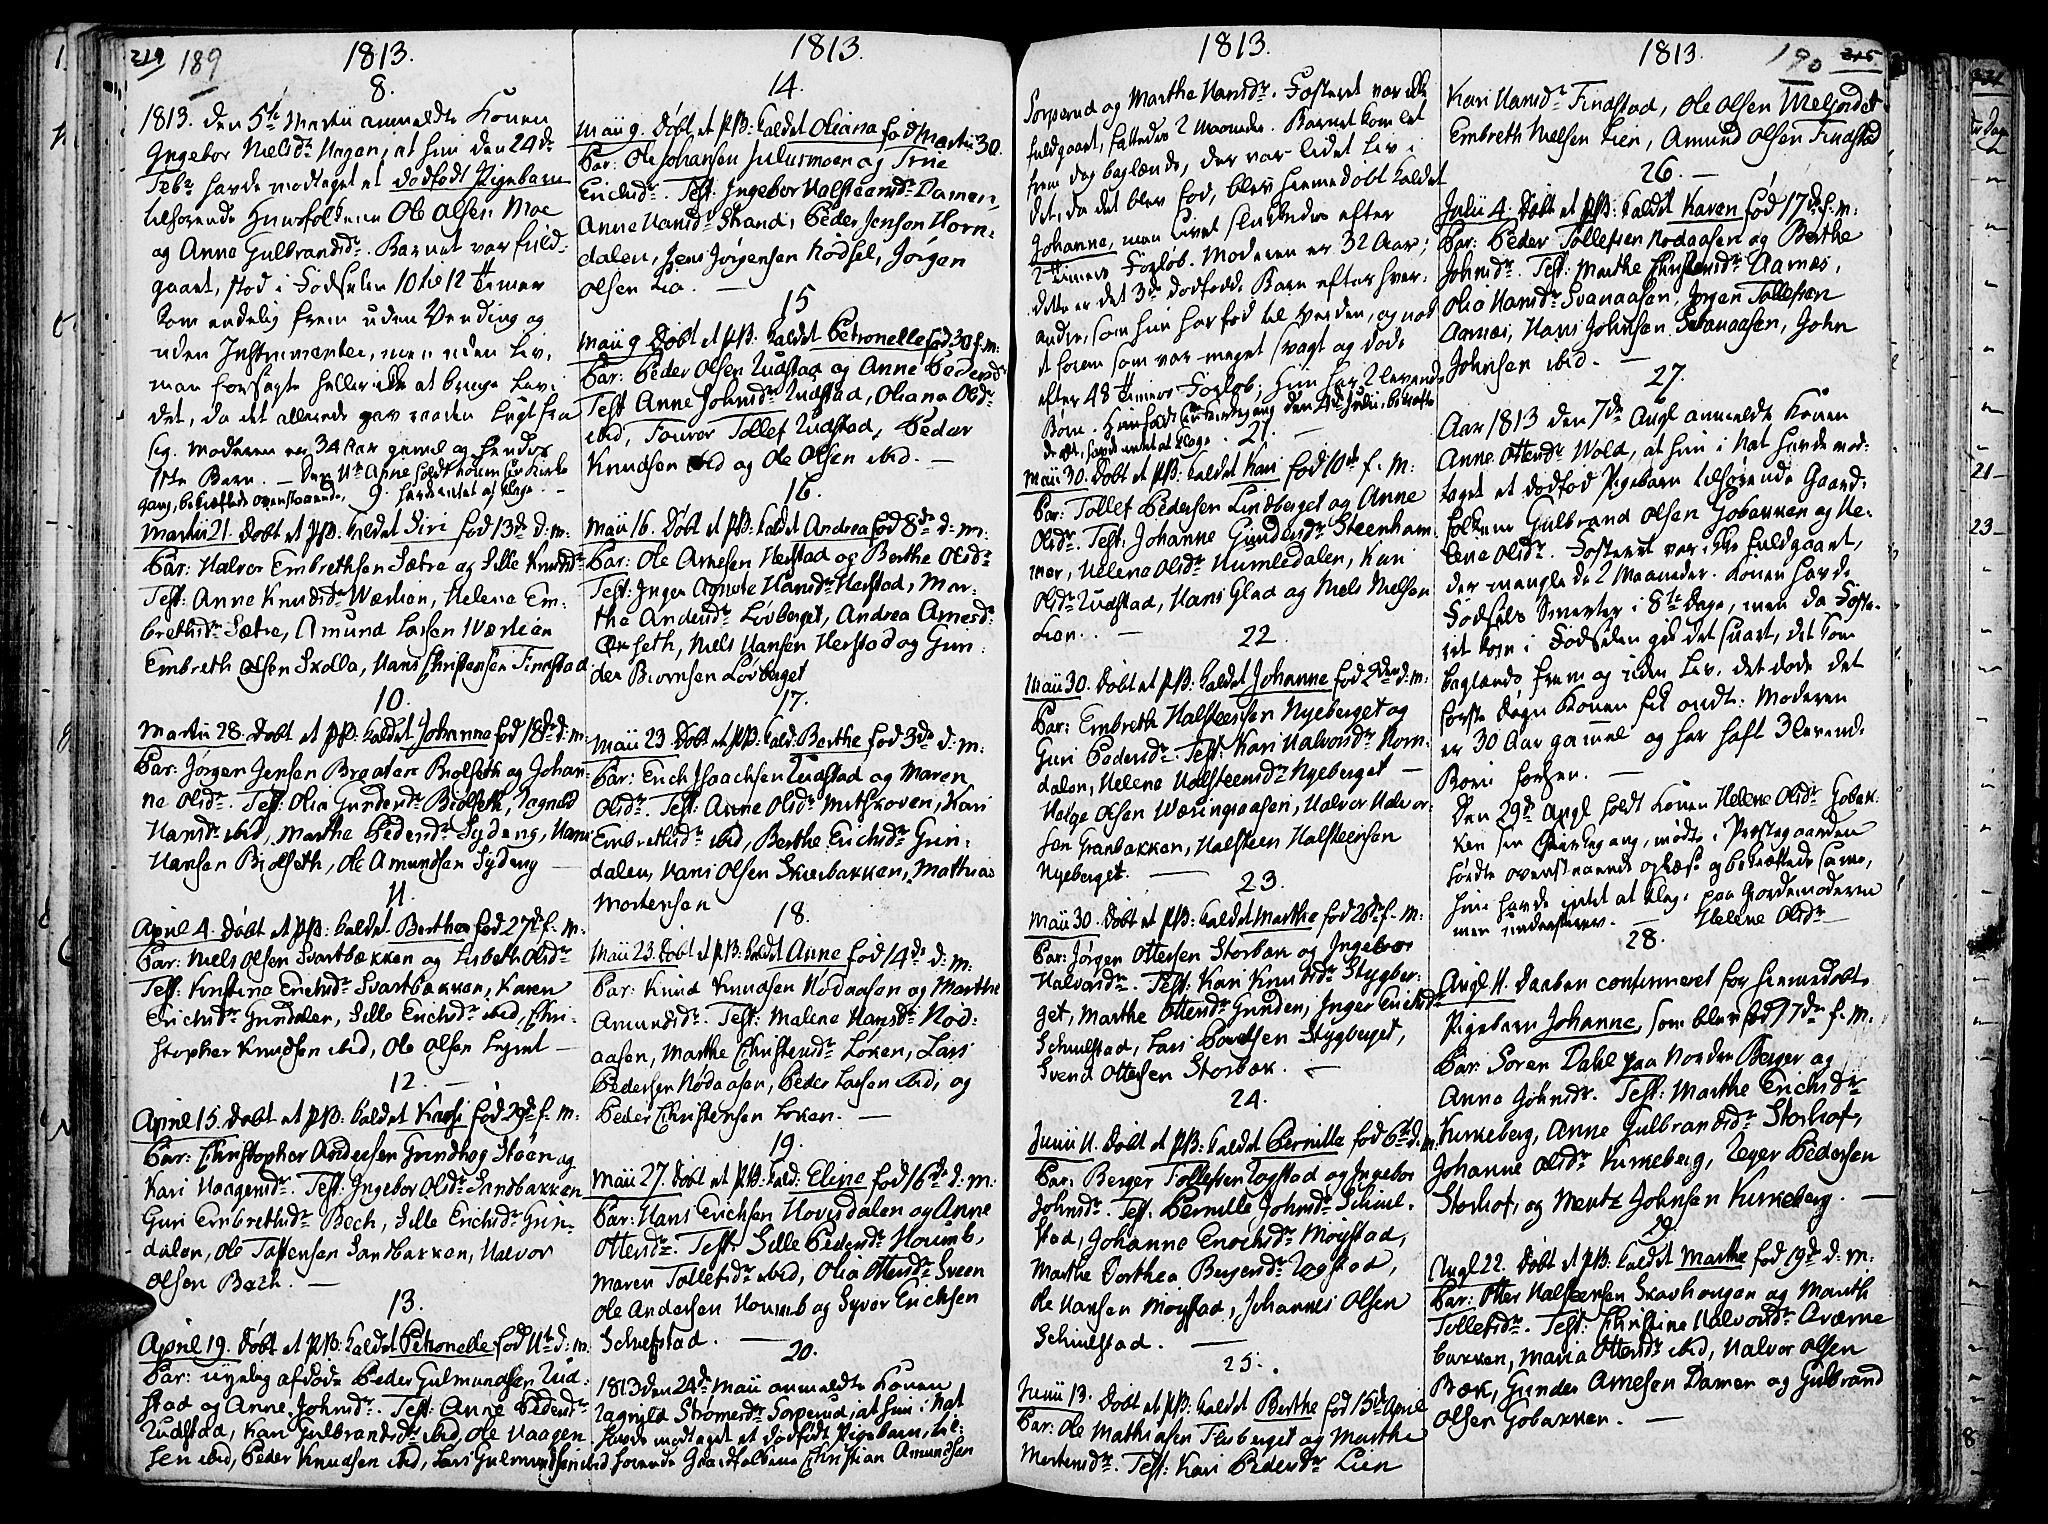 219 189
1813.
8.
1813. den 5te Martii anmeldte Konen
Ingebor Nielsdr Ungen, at hun den 24de
Febr havde modtaget et dødfødt Pigebarn
tilhørende Huusfolkene Ole Olsen Moe
og Anne Gulbrandsdr. Barnet var fuld-
gaaet, stod i Fødselen 10 til 12 Timer
kom endelig frem uden Vending og
uden Instrumenter, men uden Liv,
man forsøgte heller ikke at bringe Liv i
det, da det allerede gav raaden Lugt fra
sig. Moderen er 34 Aar gammel og hendes
1ste Barn. – Den 11te April holdt Konen sin Kirke
gang, bekræftede ovenstaaende, havde intet at klage. –
9.
Martii 21. Døbt et PB: kaldet Siri fød 13de d: m:
Par: Halvor Embrethsen Sætre og Sille Knudsdr
Test: Anne Knudsdr Wærlien, Helene Em-
brethsdr Sætre, Amund Larsen Wærlien
Embreth Olsen Skolla, Hans Christensen Finstad
10.
Martii 28. Døbt et PB: kaldet Johanne fød 18de d: m:
Par: Jørgen Jensen Braaten Biølseth og Johan-
ne Olsdr. Test: Olia Gundersdr Biølseth, Ragnild
Hansdr ibid, Marthe Pedersdr Sydeng, Hans
Hansen Biølseth, Ole Amundsen Sydeng –
11.
April 4. Døbt et PB: kaldet Berthe fød 27de f. m.
Par: Niels Olsen Svartbækken og Lisbeth Olsdr
Test: Kristina Erichsdr Svartbækken, Karen
Erichsdr Gundalen, Sille Erichsdr ibid, Chri-
stopher Knudsen ibid, Ole Olsen –
12. –
April 15. Døbt et PB: kaldet Karri fød 29de f. m.
Par: Christopher Andersen Grundhog Støen og
Kari Haagensdr. Test: Ingebor Olsdr Sandbakken
Guri Embrethsdr Bech, Sille Erichsdr Gun-
dalen, Ole Tostensen Sandbakken, Halvor
Olsen Bech. –
13.
April 19. Døbt et PB: kaldet Petronelle fød 11te d: m.
Par: nyelig afdøde Peder Gulmundsen Rud-
stad og Anne Johnsdr. Test: Anne Pedersdr
Rudstad, Kari Gulbrandsdr ibid, Ole Haagen-
sen ibid, Peder Knudsen ibid, Lars Gulmundsen ibid
1813
14.
Maii 9. Døbt et PB: kaldet Oliana fød Martii 30.
Par: Ole Johansen Julusmoen og Trne
Erichsdr. Test: Ingebor Halsteensdr Damen,
Anne Hansdr Strand, Peder Jensen Horn-
dalen, Jens Jørgensen Rødsel, Jørgen
Olsen Lia. –
15
Maii 9. Døbt et PB: kaldet Petronelle fød 30 f. m:
Par: Peder Olsen Rudstad og Anne Pedersdr
Test: Anne Johnsdr Rudstad, Oliana Olsdr
ibid, Fourer Tollef Rudstad, Peder
Knudsen ibid og Ole Olsen ibid. –
16.
Maii 16. Døbt et PB: kaldet Andrea fød 8de d: m.
Par: Ole Arnesen Herstad og Berthe Olsdr
Test: Inger Agnete Hansdr Herstad, Mar-
the Andersdr Løvberget, Andrea Arnesdr
seth, Niels Hansen Herstad og Gun-
der Biørnsen Løvberget
17.
Maii 23. Døbt et PB: kald: Berthe fød 3de d: m.
Par: Erich Isachsen Rudstad og Maren
Olsdr. Test: Anne Olsdr Mitskoven, Kari
Embrethsdr ibid, Berthe Erichsdr Gun-
dalen, Hans Olsen Skierbakken, Mathias
Mortensen
18.
Maii 23. Døbt et PB: kaldt Anne fød 14de d: m.
Par: Knud Knudsen Nødaasen og Marthe
Amundsdr. Test: Malene Hansdr Nød-
aasen, Marthe Christensdr Loken, Lars
Pedersen Nødaasen, Peder Larsen ibid, og
Peder Christensen Loken. –
19.
Maii 27. Døbt et PB: kald: Eline fød 16de d: m:
Par: Hans Erichsen Hovisdalen og Anne
Ottersdr. Test: Sille Pedersdr Houmb,
Maren Tollefsdr ibid, Olia Ottersdr Sveen
Ole Andersen Houmb og Syver Erichsen
Schulstad. –
20.
1813 den 24de Maii anmeldte Konen
Ragnild Strømersdr Sorperud, at hun i Nat
havde modtaget et dødfødt Pigebarn, til-
hørende Gaardfolkene Christian Amundsen
1813.
Sorperud og Marthe Hansdr. Fosteret var ikke
fuldgaaet, fattedes 2 Maaneder. Barnet kom let
frem dog baglænds, der var lidet Liv i
det, da det blev fød, blev hiemmedøbt kaldet
Johanne, men Livet slukkedes efter
2 Timers Forløb. Moderen er 32 Aar;
dette er det 3de dødfødde Barn efter hver-
andre, som hun har fød til Verden, og nok
et forem som var meget svagt og døde
efter 48 Timers Forløb; hun har 2 levende
Børn. Hun holdt sin Kirkegang den 4de Julii, bekræfte
de det, havde intet at klage.
21.
Maii 30. Døbt et PB: kaldet Kari fød 10de f. m.
Par: Tollef Pedersen Lindberget og Anne
Olsdr. Test: Johanne Gundersdr Steenham-
mer, Helene Olsdr Humledalen, Kari
Olsdr Rudstad, Hans Glad og Niels Nielsen
Lien. –
22
Maii 30. Døbt et PB: kaldet Johanne fød 2den d: m:
Par: Embreth Halsteensen Nyeberget og
Guri Pedersdr. Test: Kari Halvorsdr Horn-
dalen, Helene Halsteensdr Nyeberget –
Helge Olsen Wæringsaasen, Halvor Halvor-
sen Granbakken, Halsteen Halsteensen
Nyeberget. –
23.
Maii 30. Døbt et PB: kaldet Marthe fød 26de f. m.
Par: Jørgen Ottersen Storbæk og Ingebor
Halvorsdr. Test: Kari Knudsdr Stygber-
get, Marthe Ottersdr Grinden, Inger Erichsdr
Schulstad, Lars Pordsen Stygberget,
Svend Ottersen Storbæk. –
24.
Junii 11. Døbt et PB: kaldet Pernille fød 6te d. m.
Par: Berger Tollefsen Rogstad og Ingebor
Johnsdr. Test: Pernille Johnsdr Schul-
stad, Johanne Enochsdr Møystad,
Marthe Dorthea Bergersdr Rogstad,
Ole Hansen Møystad, Johannes Olsen
Schulstad. –
25.
Junii 13. Døbt et PB: kaldet Berthe fød 15de April
Par: Ole Mathiasen Flisberget og Marthe
Mortensdr. Test: Kari Pedersdr Lien
1813.
190 215
Kari Hansdr Findstad, Ole Olsen Meljordet
Embreth Nielsen Lien, Amund Olsen Findstad
26. –
Julii 4. Døbt et PB: kaldet Karen fød 17de f. m:
Par: Peder Tollefsen Nodaasen og Berthe
Johnsdr. Test: Marthe Christensdr Aarnæs,
Olia Hansdr Svanaasen, Jørgen Tollefsen
Aarnæs, Hans Johnsen Svanaasen, John
Johnsen ibid. –
27.
Aar 1813 den 7de Augl anmeldte Konen
Anne Ottersdr Wold, at hun i Nat havde mod-
taget et dødfød Pigebarn tilhørende Gaard-
folkene Gulbrand Olsen Gobakken og He-
lene Olsdr. Fosteret var ikke fuldgaaet,
der manglede 2 Maaneder. Konen havde
Fødsels Smerter i 8te Dage, men da Foste-
ret kom i Fødselen gik det snart, det kom
baglands frem og uden Liv, det døde det
første Døgn Konen fik ondt: Moderen
er 30 Aar gammel og har haft 3 levende
Børn forhen. –
Den 29de Augl holdt Konen Helene Olsdr Gobak-
ken sin Kirkegang, mødte i Præstegaarden
hørdte ovenstaaende oplæse og bekræftede samme,
hun havde intet at klage paa Giordemoderen
men underskrev. – Helene Olsdr –
28.
Augl 11. Daaben confirmeret for hiemmedøbte
Pigebarn Johanne, som blev fød 17de f. m.
Par: Søren Dahl paa Nordre Berger og
Anne Johnsdr. Test: Marthe Erichsdr
Kirkeberg, Anne Gulbrandsdr Storhof,
Johanne Olsdr Kirkeberg, Reyer Pedersen
Storhof, og Mentz Johnsen Kirkeberg. –
29
Augl 22. Døbt et PB: kaldet Marthe fød 19de d: m.
Par: Otter Halsteensen Skavhougen og Marith
Tollefsdr. Test: Christine Halvorsdr Qværne
bakken, Maria Ottersdr ibid, Halvor Olsen
Bæk, Gunder Arnesen Damen og Gulbrand
Olsen Gobakken. –
21
23
8